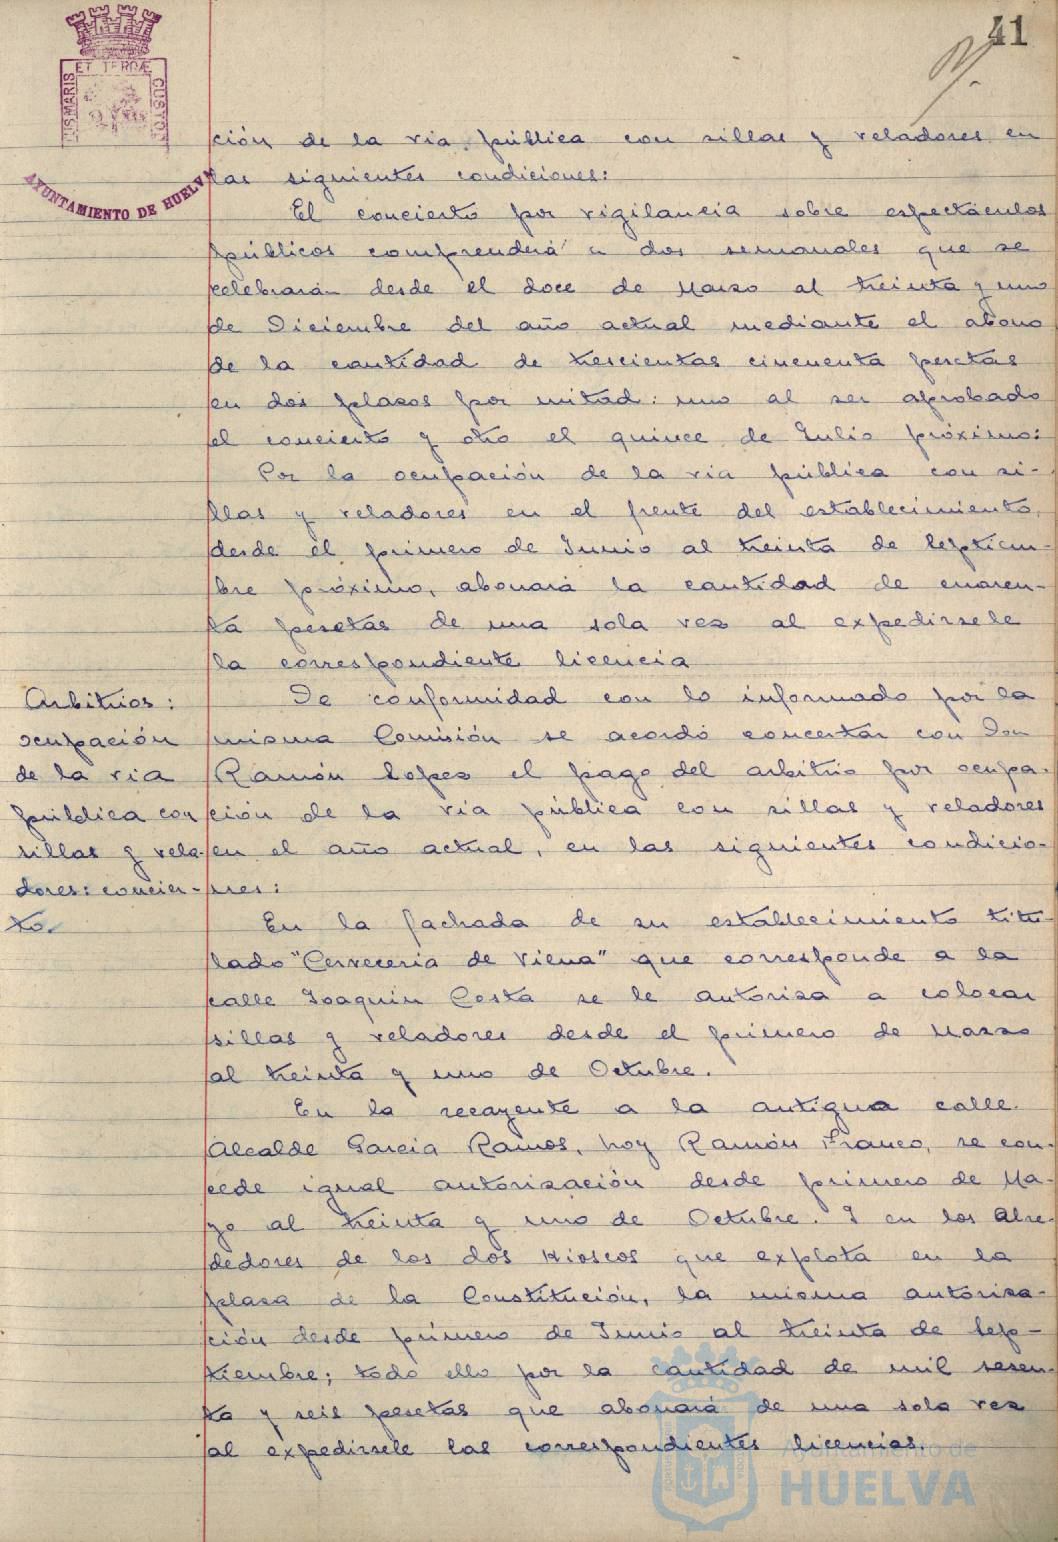 41
ET TERRÆ
CUSTOS
AYUNTAMIENTO DE HUELVA
ción de la via pública con sillas y veladores en
las siguientes condiciones:
El concierto por vigilancia sobre espectáculos
públicos comprenderá a dos semanales que se
celebrarán desde el doce de Marzo al treinta y uno
de Diciembre del año actual mediante el abono
de la cantidad de trescientas cincuenta pesetas
en dos plazos por mitad: uno al ser aprobado
el concierto y otro el quince de Julio próximo:
Por la ocupación de la via pública con si-
llas y veladores en el frente del establecimiento,
desde el primero de Junio al treinta de Septiem-
bre próximo, abonará la cantidad de cuaren-
ta pesetas de una sola vez al expedirsele
la correspondiente licencia
Arbitrios:
ocupación
de la via
pública con
sillas y vela-
dores: concier-
to.
De conformidad con lo informado por la
misma Comisión se acordó concertar con Don
Ramón Lopez el pago del arbitrio por ocupa-
ción de la via pública con sillas y veladores
en el año actual, en las siguientes condicio-
nes:
En la fachada de su establecimiento titu-
lado "Cerveceria de Viena" que corresponde a la
calle Joaquin Costa se le autoriza a colocar
sillas y veladores desde el primero de Marzo
al treinta y uno de Octubre.
En la recayente a la antigua calle
Alcalde Garcia Ramos, hoy Ramón Franco, se con-
cede igual autorización desde primero de Ma-
yo al treinta y uno de Octubre. I en los alre-
dedores de los dos Kioscos que explota en la
plaza de la Constitución, la misma autoriza-
ción desde primero de Junio al treinta de Sep-
tiembre; todo ello por la cantidad de mil sesen-
ta y seis pesetas que abonará de una sola vez
al expedirsele las correspondientes licencias.
Ayuntamiento de
HUELVA